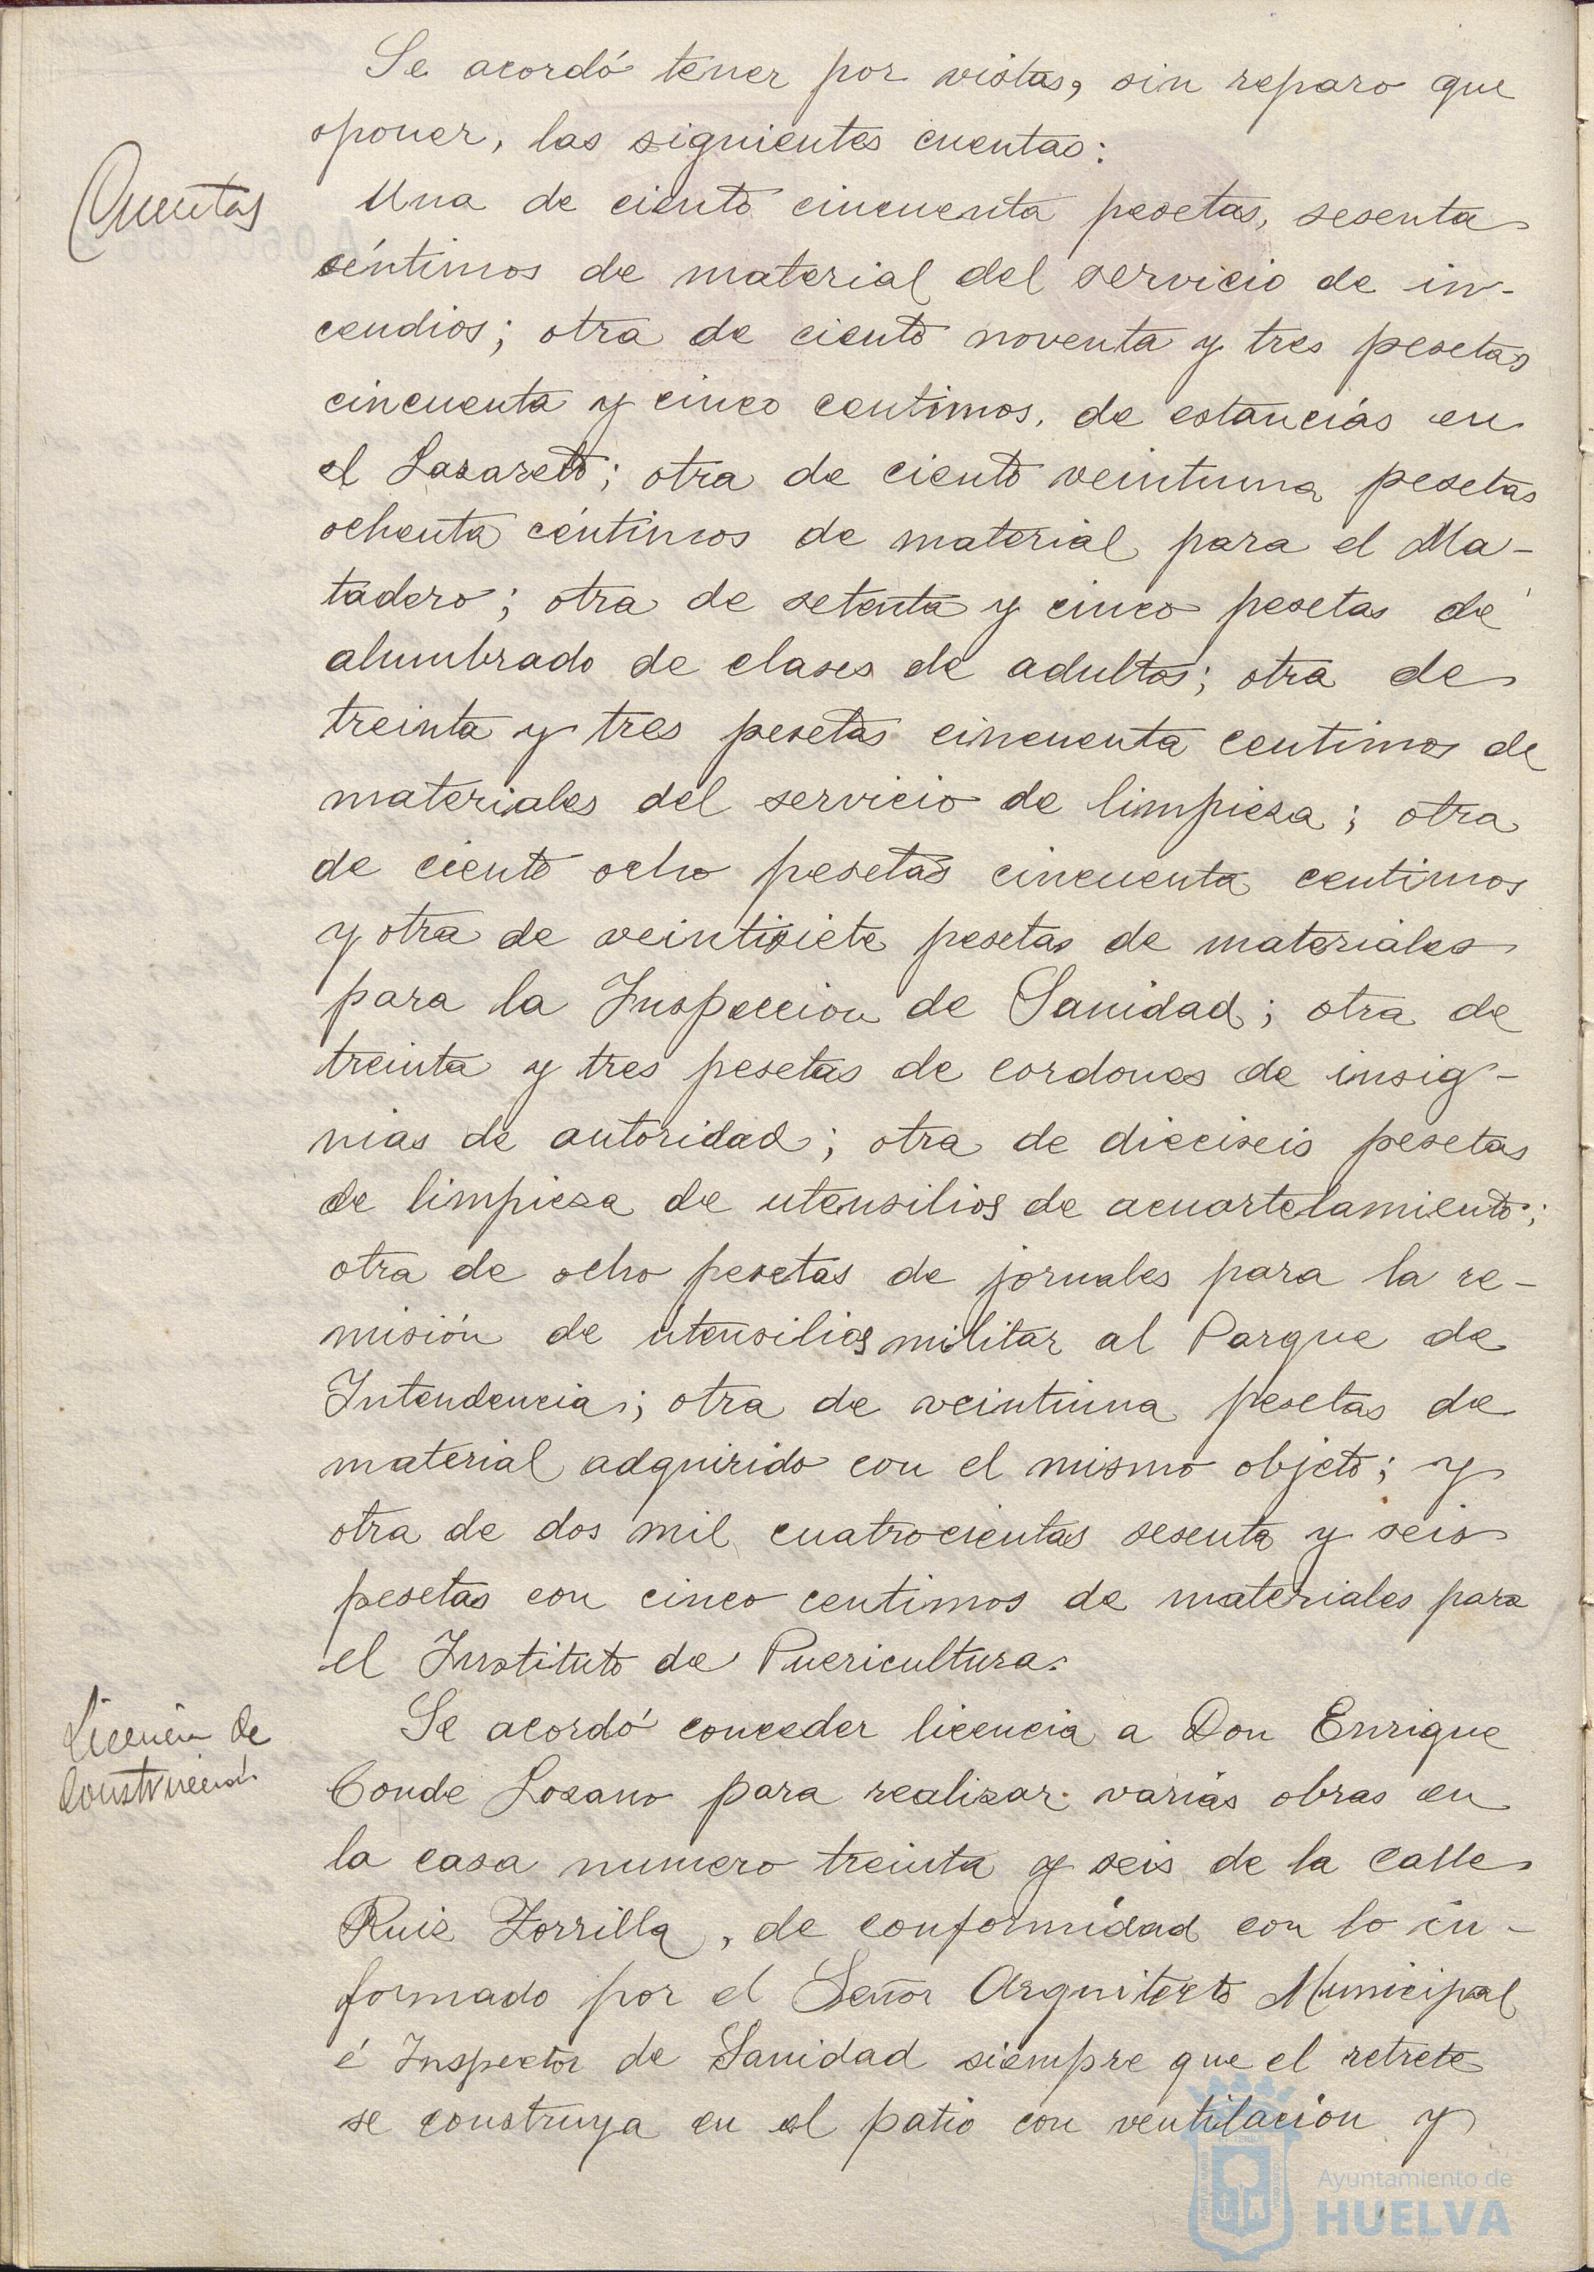 Se acordó tener por vistas, sin reparo que
oponer, las siguientes cuentas:
Cuentas
Una de ciento cincuenta pesetas, sesenta
céntimos de material del servicio de in-
cendios; otra de ciento noventa y tres pesetas
cincuenta y cinco centimos, de estancias en
el Lazareto; otra de ciento veintiuna pesetas
ochenta céntimos de material para el Ma-
tadero; otra de setenta y cinco pesetas de
alumbrado de clases de adultos; otra de
treinta y tres pesetas cincuenta centimos de
materiales del servicio de limpieza; otra
de ciento ocho pesetas cincuenta centimos
y otra de veintisiete pesetas de materiales
para la Inspeccion de Sanidad; otra de
treinta y tres pesetas de cordones de insig-
nias de autoridad; otra de dieciseis pesetas
de limpieza de utensilios de acuartelamiento;
otra de ocho pesetas de jornales para la re-
misión de utensilios militar al Parque de
Intendencia; otra de veintiuna pesetas de
material adquirido con el mismo objeto; y
otra de dos mil cuatrocientas sesenta y seis
pesetas con cinco centimos de materiales para
el Instituto de Puericultura.
Licencia de
construcción
Se acordó conceder licencia a Don Enrique
Conde Lozano para realizar varias obras en
la casa numero treinta y seis de la calle
Ruiz Zorrilla, de conformidad con lo in-
formado por el Señor Arquitecto Municipal
é Inspector de Sanidad siempre que el retrete
se construya en el patio con ventilacion y
Ayuntamiento de
HUELVA